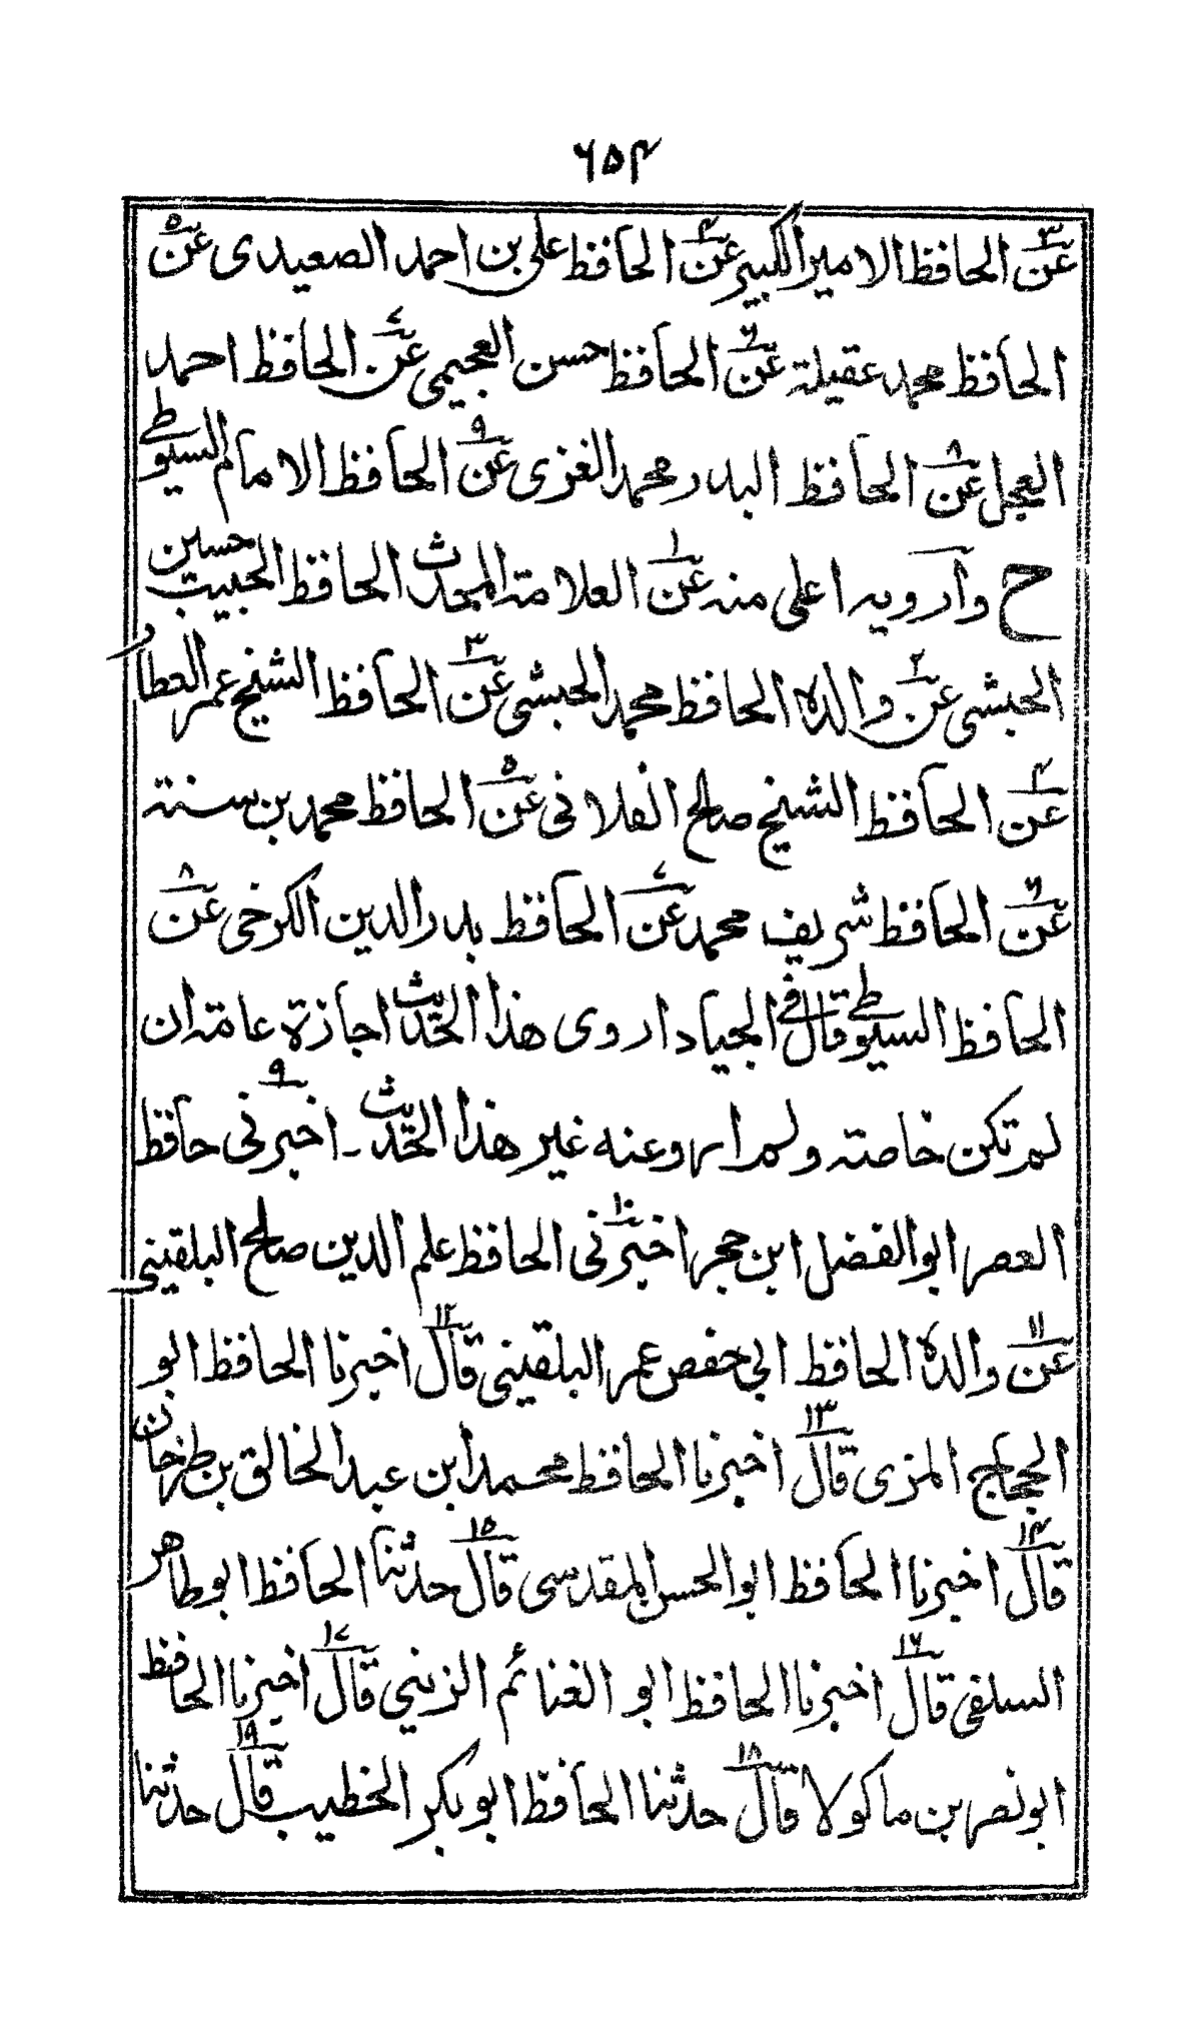 ۶۵۴
عن۳ الحافظ الامير الكبير عن۴ الحافظ على بن احمد الصعيدى عن۵
الحافظ محمد عقيلة عن۶ الحافظ حسن العجيمى عن۷ الحافظ احمد
العجل عن۸ الحافظ البدر محمد الغزى عن۹ الحافظ الامام السيوطے
ح وآرويه اعلى منه عن۱ العلامة المحدث الحافظ الحبيب حسين
الحبشى عن۲ والده الحافظ محمد الحبشى عن۳ الحافظ الشيخ عمر العطار
عن۴ الحافظ الشيخ صالح الفلانى عن۵ الحافظ محمد بن سنة
عن۶ الحافظ شريف محمد عن۷ الحافظ بدر الدين الكرخى عن۸
الحافظ السيوطے قال فے الجياد اروى هذا الحديث اجازة عامة ان
لم تكن خاصة ولم ارو عنه غير هذا الحديث ۔ اخبرنى۹ حافظ
العصر ابو الفضل ابن حجر اخبرنى۱۰ الحافظ علم الدين صالح البلقينى
عن۱۱ والده الحافظ ابي حفص عمر البلقينى قال۱۲ اخبرنا الحافظ ابو
الحجاج المزى قال۱۳ اخبرنا الحافظ محمد ابن عبد الخالق بن طرخان
قال۱۴ اخبرنا الحافظ ابو الحسن المقدسى قال۱۵ حدثنا الحافظ ابو طاهر
السلفى قال۱۶ اخبرنا الحافظ ابو الغنائم الزينبي قال۱۷ اخبرنا الحافظ
ابو نصر بن ماكولا قال۱۸ حدثنا الحافظ ابو بكر الخطيب قال۱۹ حدثنا